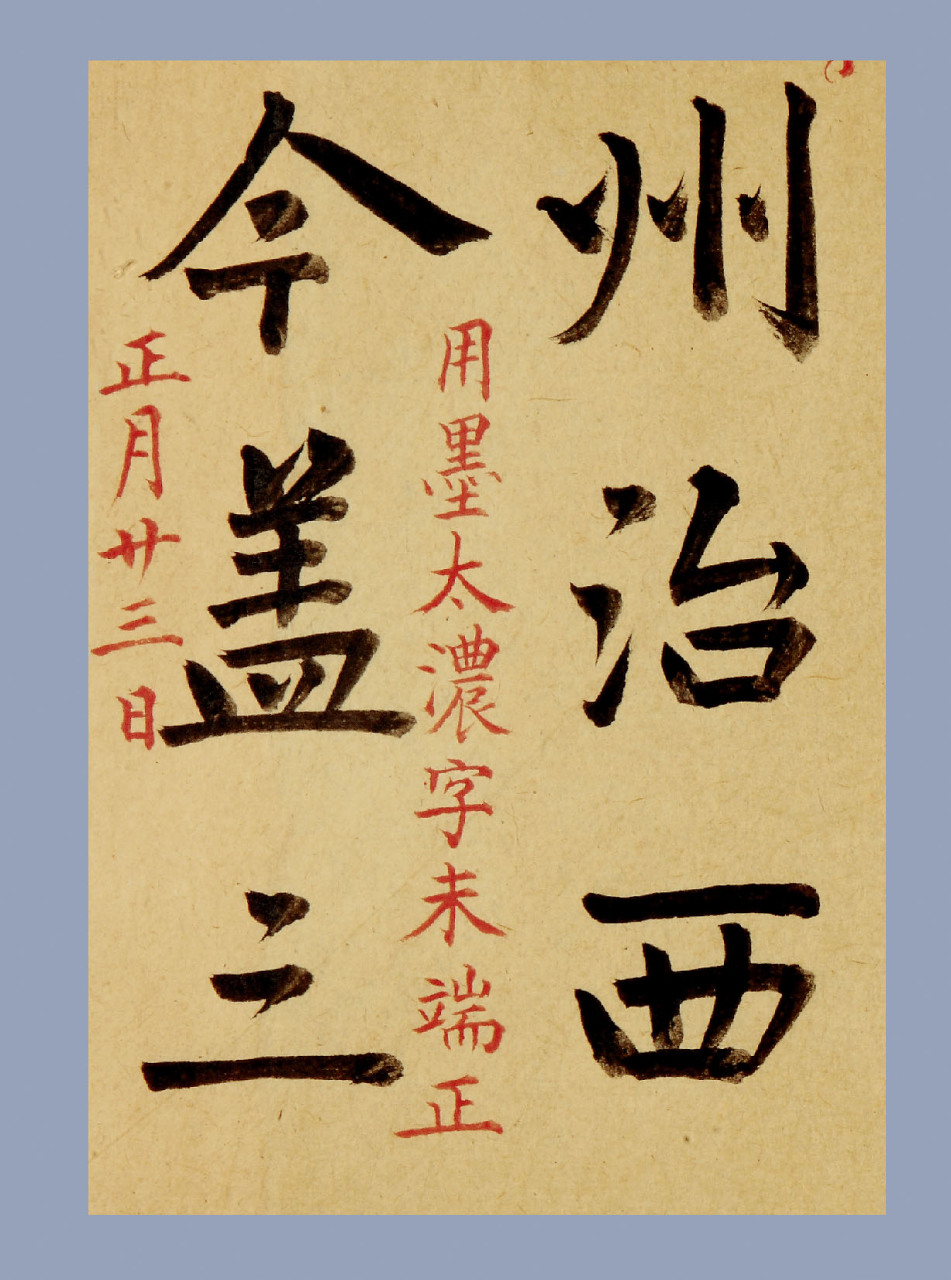 州治西
用墨太濃字未端正
今盖三
正月廿三日